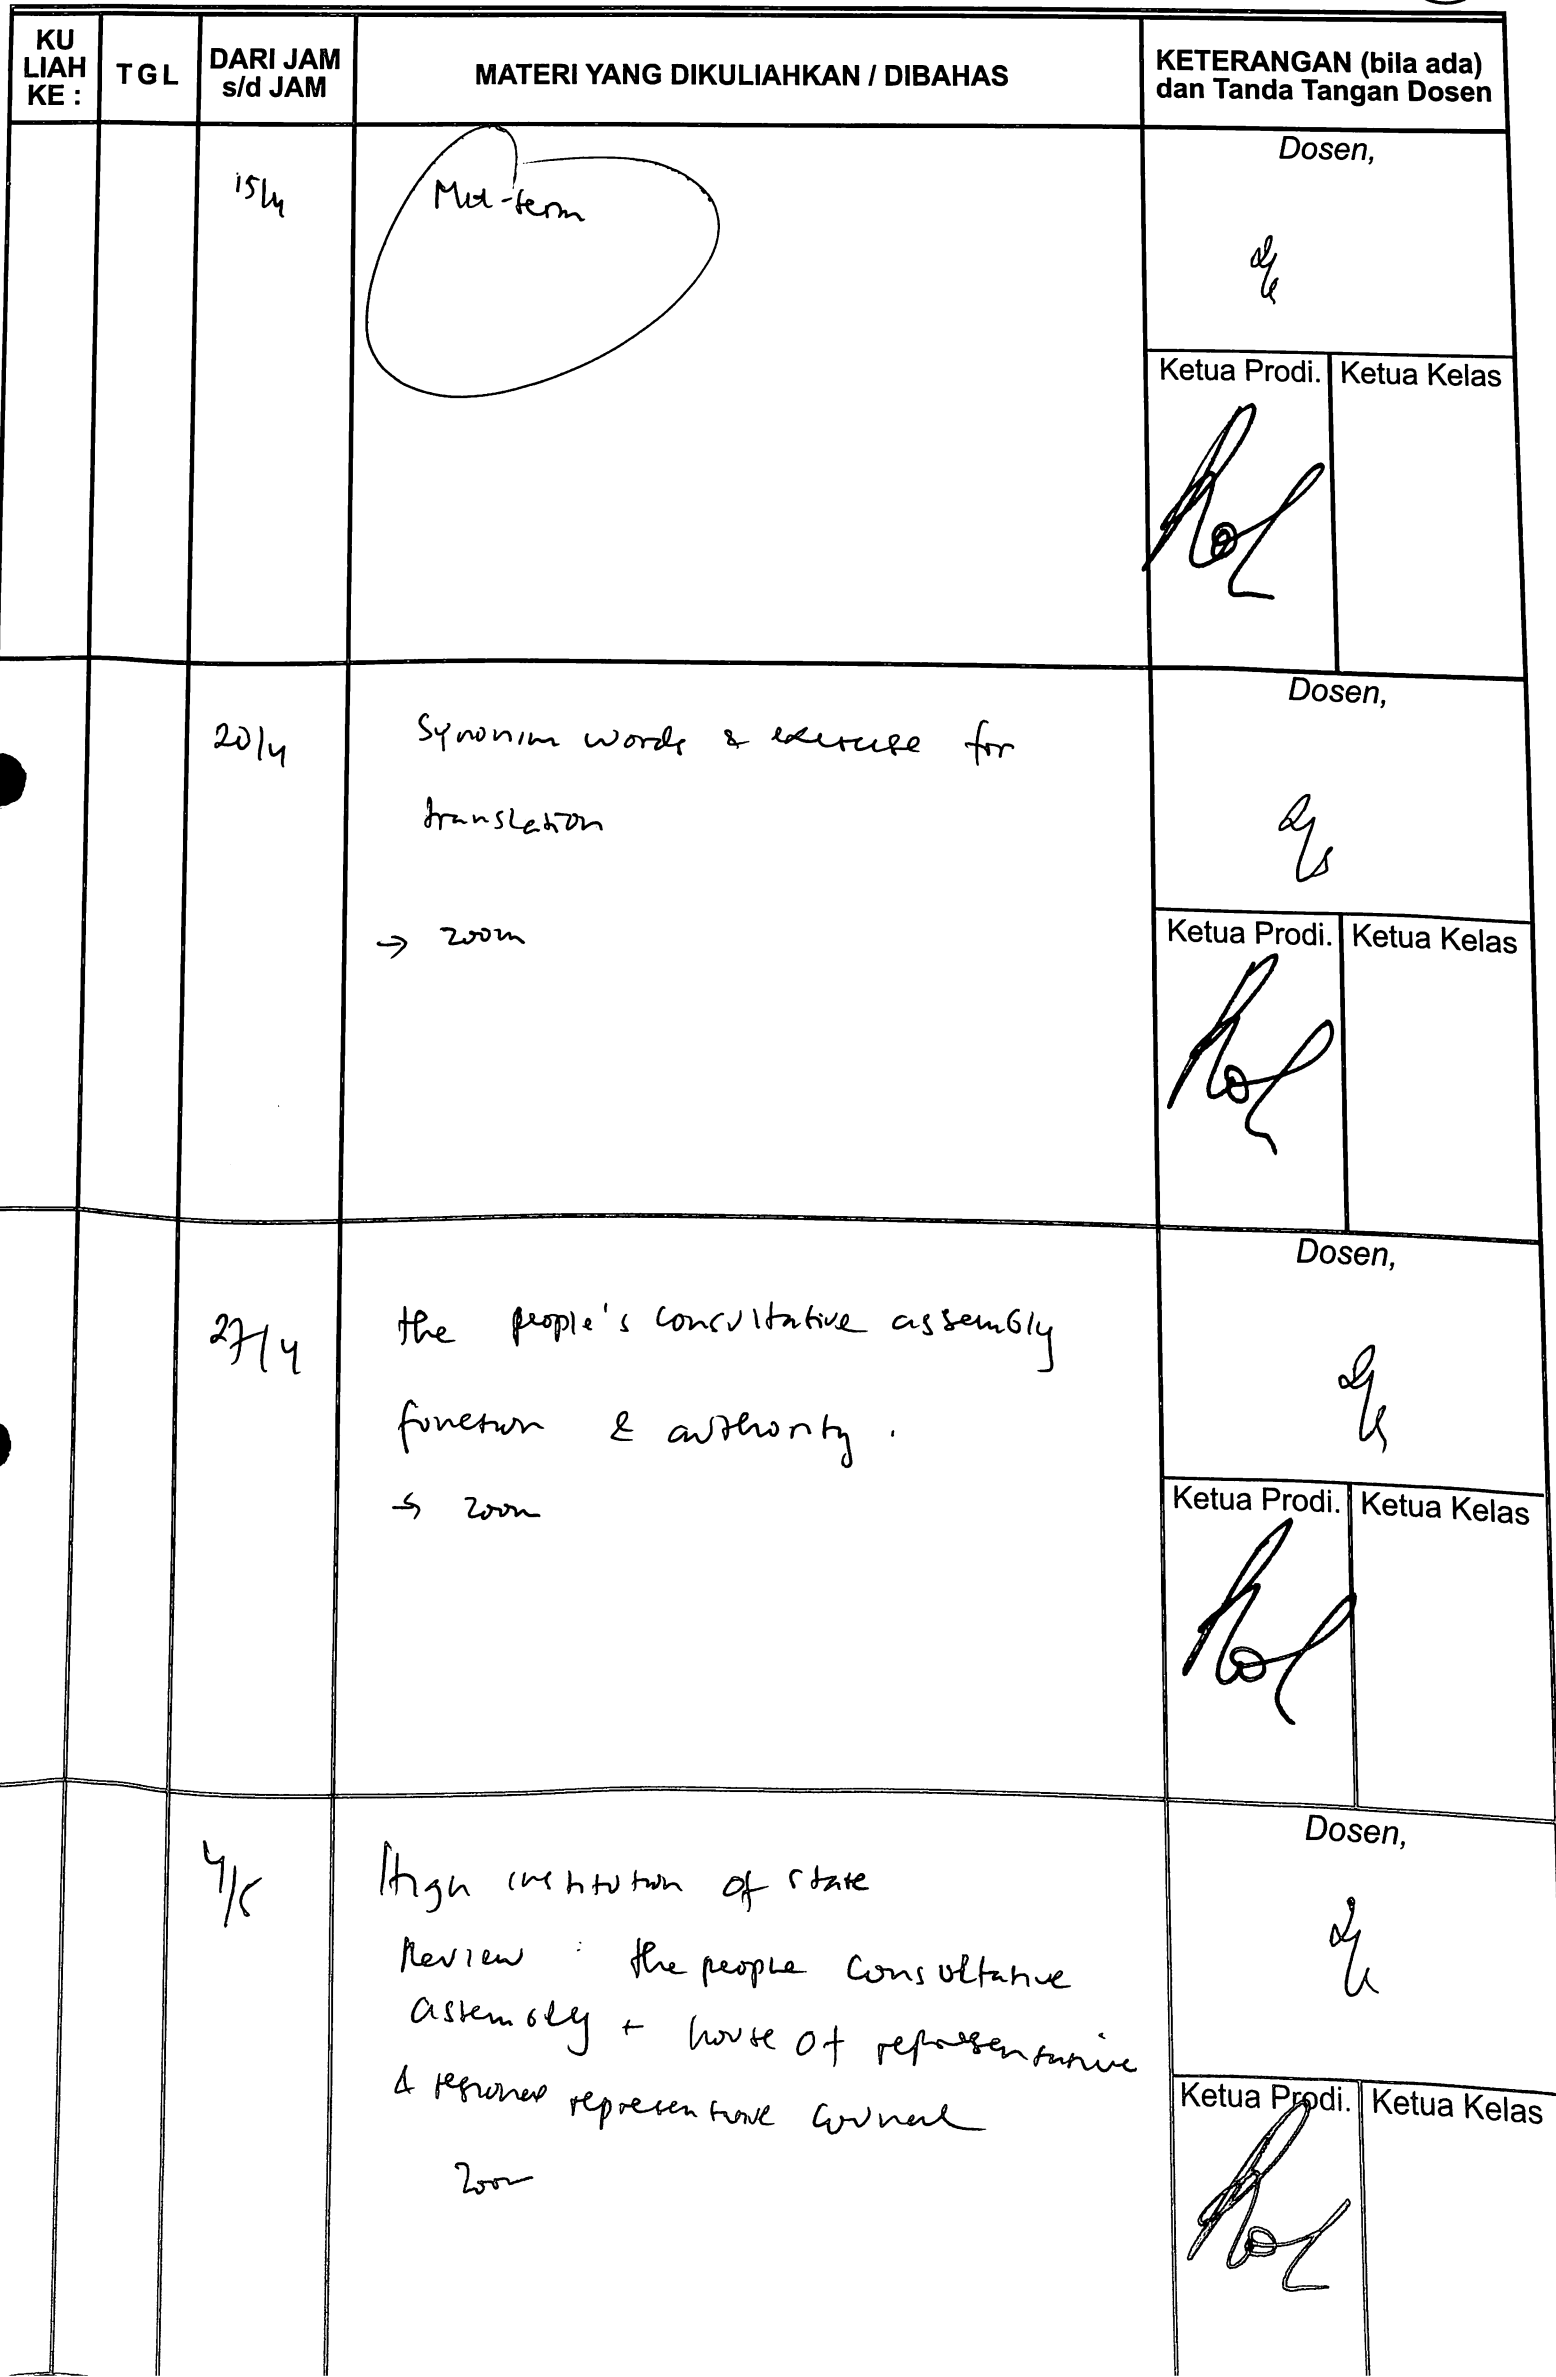 KU LIAH KE :
TGL
DARI JAM s/d JAM
MATERI YANG DIKULIAHKAN / DIBAHAS
KETERANGAN (bila ada) dan Tanda Tangan Dosen
15/4
Mid-term
Dosen,
Ketua Prodi.
Ketua Kelas
20/4
Synonim words & exercise for
translation
→ zoom
Dosen,
Ketua Prodi.
Ketua Kelas
27/4
the people's consultative assembly
function & authority.
→ zoom
Dosen,
Ketua Prodi.
Ketua Kelas
4/5
High institution of state
Review : the people consultative
assembly + house of representative
& regional representative council
Zoom
Dosen,
Ketua Prodi.
Ketua Kelas